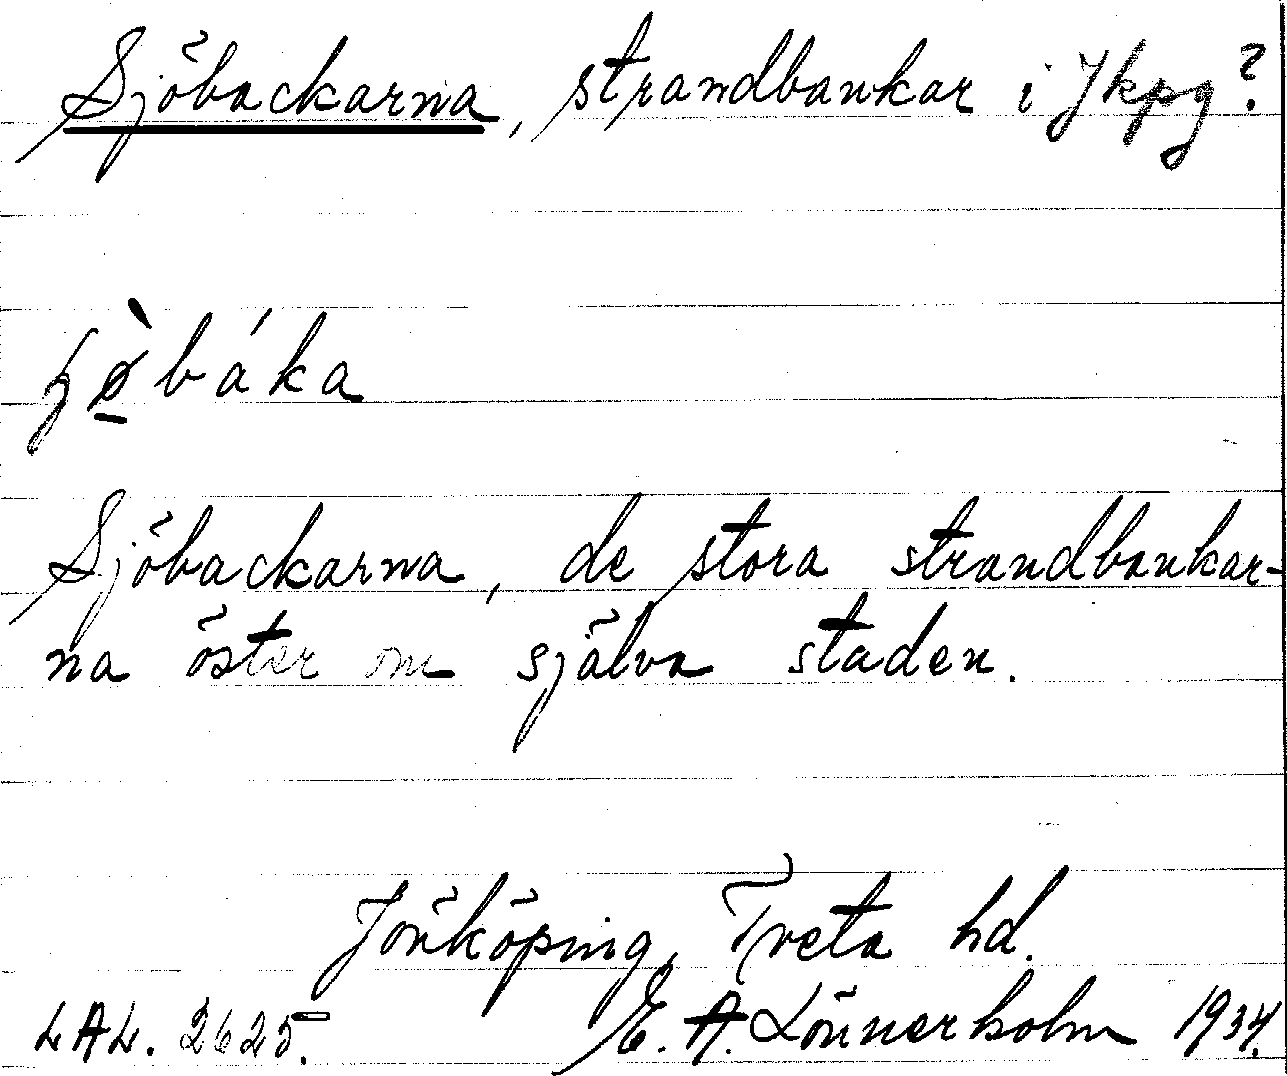 Sjöbackarna, strandbankar i Jkpg?
báka
Sjöbackarna, de stora strandbankar-
na öster om själva staden.
Jönköping, Tveta hd.
LAL. 2625. E. A. Lönnerholm 1934.